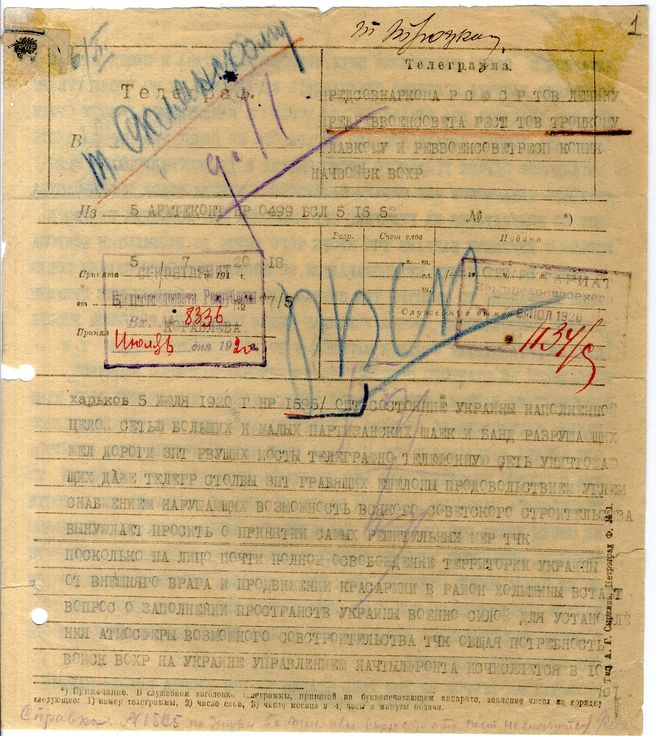 1
т Троцкому
Телеграф.
Телеграмма.
т. Склянскому
ПРЕДСОВНАРКОМА Р С Ф С Р ТОВ ЛЕНИНУ
ПРЕДРЕВВОЕНСОВЕТА РЕСП ТОВ ТРОЦКОМУ
ГЛАВКОМУ И РЕВВОЕНСОВЕТРЕСП КОПИЯ
НАЧВОЙСК ВОХР
В
Из 5 НР 0499 БСЛ 5 16 5 № *)
Разр. Счет слов Подача
5 7 20 18
Принята 191 г.
СЕКРЕТАРИАТ
от № 77/5
Вх. № 8336
Принял
Июль дня 1920 г.
Служебные отметки
СЕКРЕТАРИАТ
ИЮЛ 1920
РВСР
харьков 5 ИЮЛЯ 1920 Г НР 1595/ ОП СОСТОЯНИЕ УКРАИНЫ НАПОЛНЕННОЙ
ЦЕЛОЙ СЕТЬЮ БОЛЬШИХ И МАЛЫХ ПАРТИЗАНСКИХ ШАЕК И БАНД РАЗРУШАЩИХ
ЖЕЛ ДОРОГИ ЗПТ РВУЩИХ МОСТЫ ТЕЛЕГРАФНО ТЕЛЕФОННУЮ СЕТЬ УНИЧТОЖАЮ
ЩИХ ДАЖЕ ТЕЛЕГР СТОЛБЫ ЗПТ ГРАБЯЩИХ ЕШЕЛОНЫ ПРОДОВОЛЬСТВИЕМ УГЛЕМ
СНАБЖЕНИЕМ НАРУШАЮЩИХ ВОЗМОЖНОСТЬ ВСЯКОГО СОВЕТСКОГО СТРОИТЕЛЬСТВА
ВЫНУЖДАЕТ ПРОСИТЬ О ПРИНЯТИИ САМЫХ РЕШИТЕЛЬНЫХ МЕР ТЧК
ПОСКОЛЬКУ НА ЛИЦО ПОЧТИ ПОЛНОЕ ОСВОБОЖДЕНИЕ ТЕРРИТОРИИ УКРАИНЫ
ОТ ВНЕШНЯГО ВРАГА И ПРОДВИЖЕНИИ КРАСАРМИИ В РАЙОН ХОЛМЩИНЫ ВСТАЕТ
ВОПРОС О ЗАПОЛНЕНИИ ПРОСТРАНСТВ УКРАИНЫ ВОЕННО СИЛОЙ ДЛЯ УСТАНОВЛЕ
НИЯ АТМОСФЕРЫ ВОЗМОЖНОГО СОВСТРОИТЕЛЬСТВА ТЧК ОБЩАЯ ПОТРЕБНОСТЬ
ВОЙСК ВОХР НА УКРАИНЕ УПРАВЛЕНИЕМ НАЧТЫЛФРОНТА ИСЧИСЛЯЕТСЯ В 10
*) Примечание. В служебном заголовке телеграммы, принятой на буквопечатающем аппарате, значение чисел по порядку
следующее: 1) номер телеграммы, 2) число слов, 3) число месяца и 4) часы и минуты подачи.
Справка
Петроград Ф. №